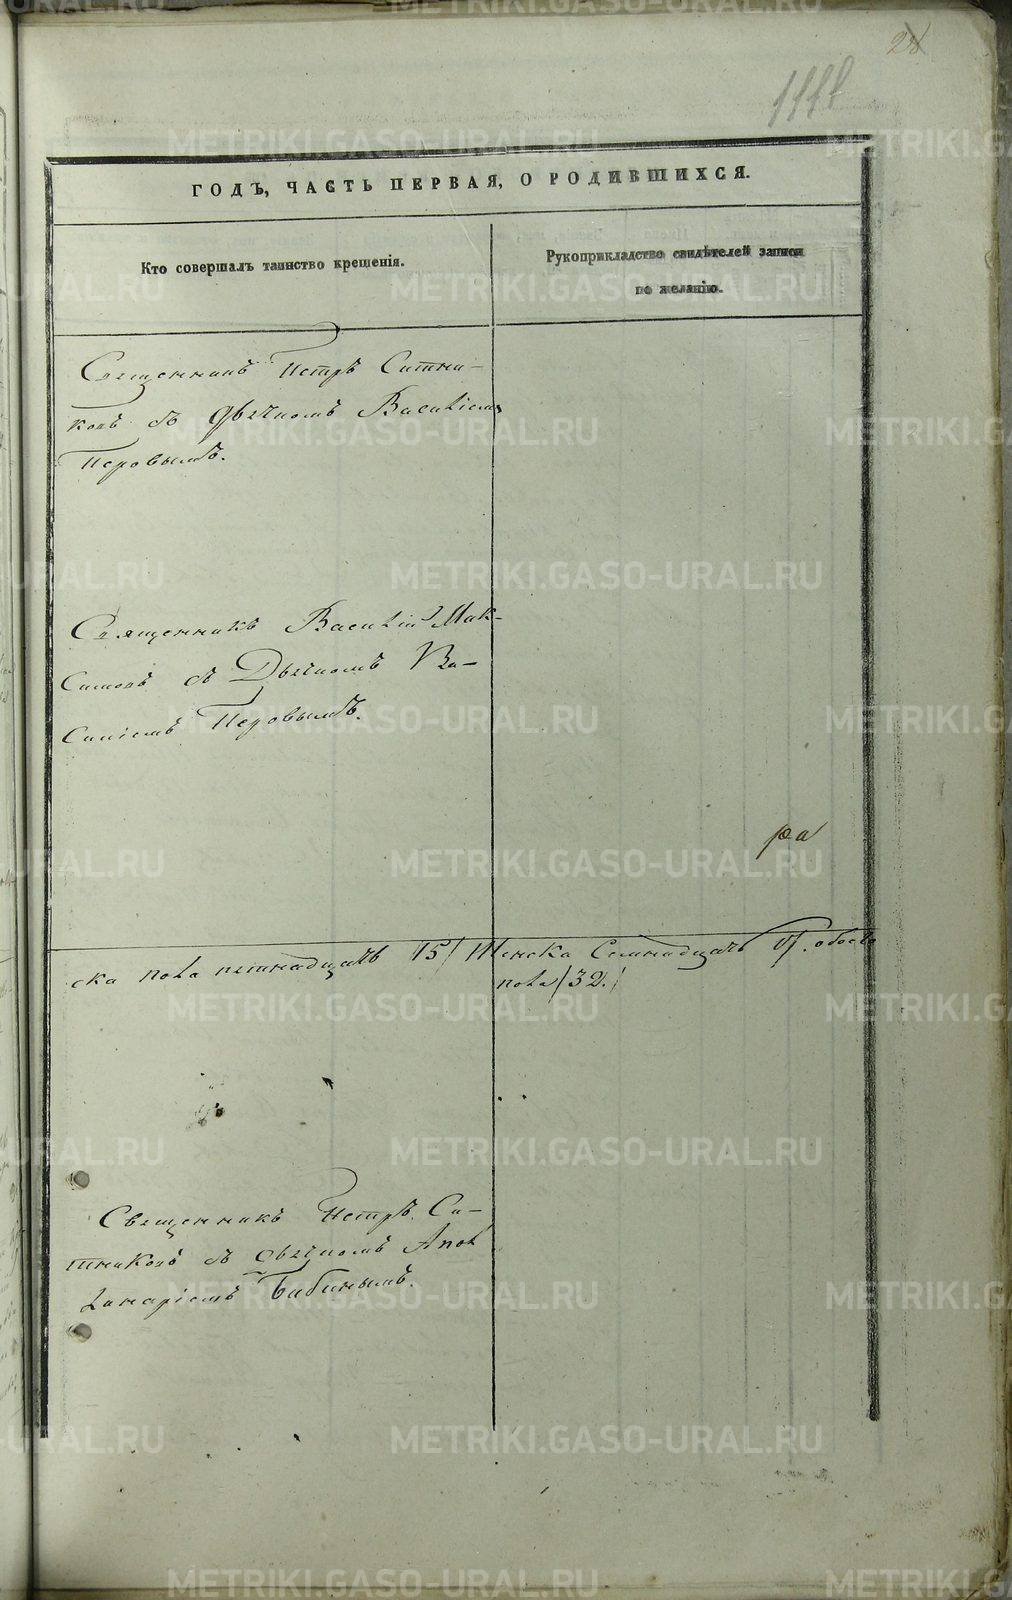 28
1111
ГОДЪ, ЧАСТЬ ПЕРВАЯ, О РОДИВШИХСЯ.
Кто совершалъ таинство крещенія.
Рукоприкладство свидѣтелей записи
по желанію.
Священникъ Петръ Ситни-
ковъ съ дьячкомъ Василіемъ
Перовымъ.
Священникъ Василій Мак-
симовъ съ Дьячкомъ Ва-
силіемъ Перовымъ.
ра
ска пола пятнадцать 15/ Женска Семнадцать 17. обоего
пола /32./
Священникъ Петръ Си-
тниковъ съ дьячкомъ Апол
линаріемъ Бибинымъ.
METRIKI.GASO-URAL.RU